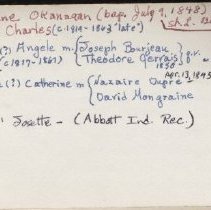 ne Okanagan (bap. July 9, 1848)
Charles (c.1819-1843 "late")
(?) Angele m. {Joseph Bourjeau
c.1817-1861) {Theodore Gervais} q.v.
1850
Apr. 13, 1845
(?) Catherine m {Nazaire Dupre
{David Mongraine
Josette - (Abbott Ind. Rec.)